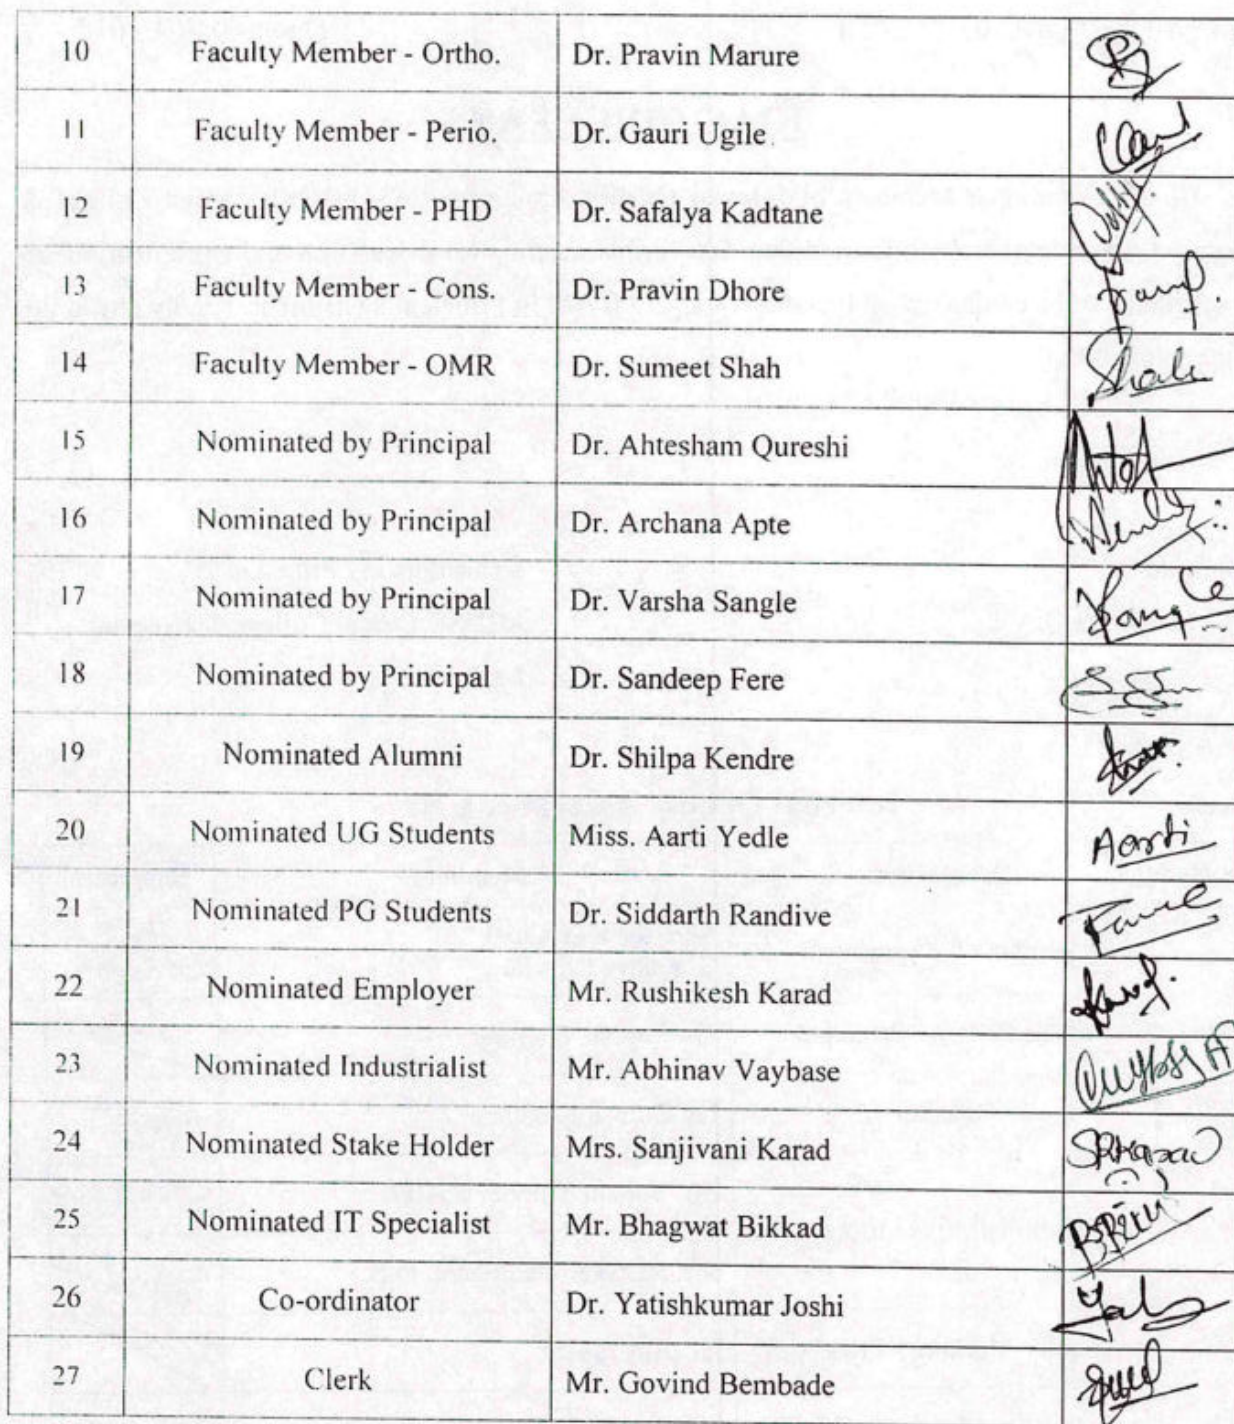 10 Faculty Member - Ortho. Dr. Pravin Marure
11 Faculty Member - Perio. Dr. Gauri Ugile
12 Faculty Member - PHD Dr. Safalya Kadtane
13 Faculty Member - Cons. Dr. Pravin Dhore
14 Faculty Member - OMR Dr. Sumeet Shah Shah
15 Nominated by Principal Dr. Ahtesham Qureshi
16 Nominated by Principal Dr. Archana Apte
17 Nominated by Principal Dr. Varsha Sangle
18 Nominated by Principal Dr. Sandeep Fere
19 Nominated Alumni Dr. Shilpa Kendre
20 Nominated UG Students Miss. Aarti Yedle Aarti
21 Nominated PG Students Dr. Siddarth Randive
22 Nominated Employer Mr. Rushikesh Karad
23 Nominated Industrialist Mr. Abhinav Vaybase
24 Nominated Stake Holder Mrs. Sanjivani Karad
25 Nominated IT Specialist Mr. Bhagwat Bikkad
26 Co-ordinator Dr. Yatishkumar Joshi
27 Clerk Mr. Govind Bembade